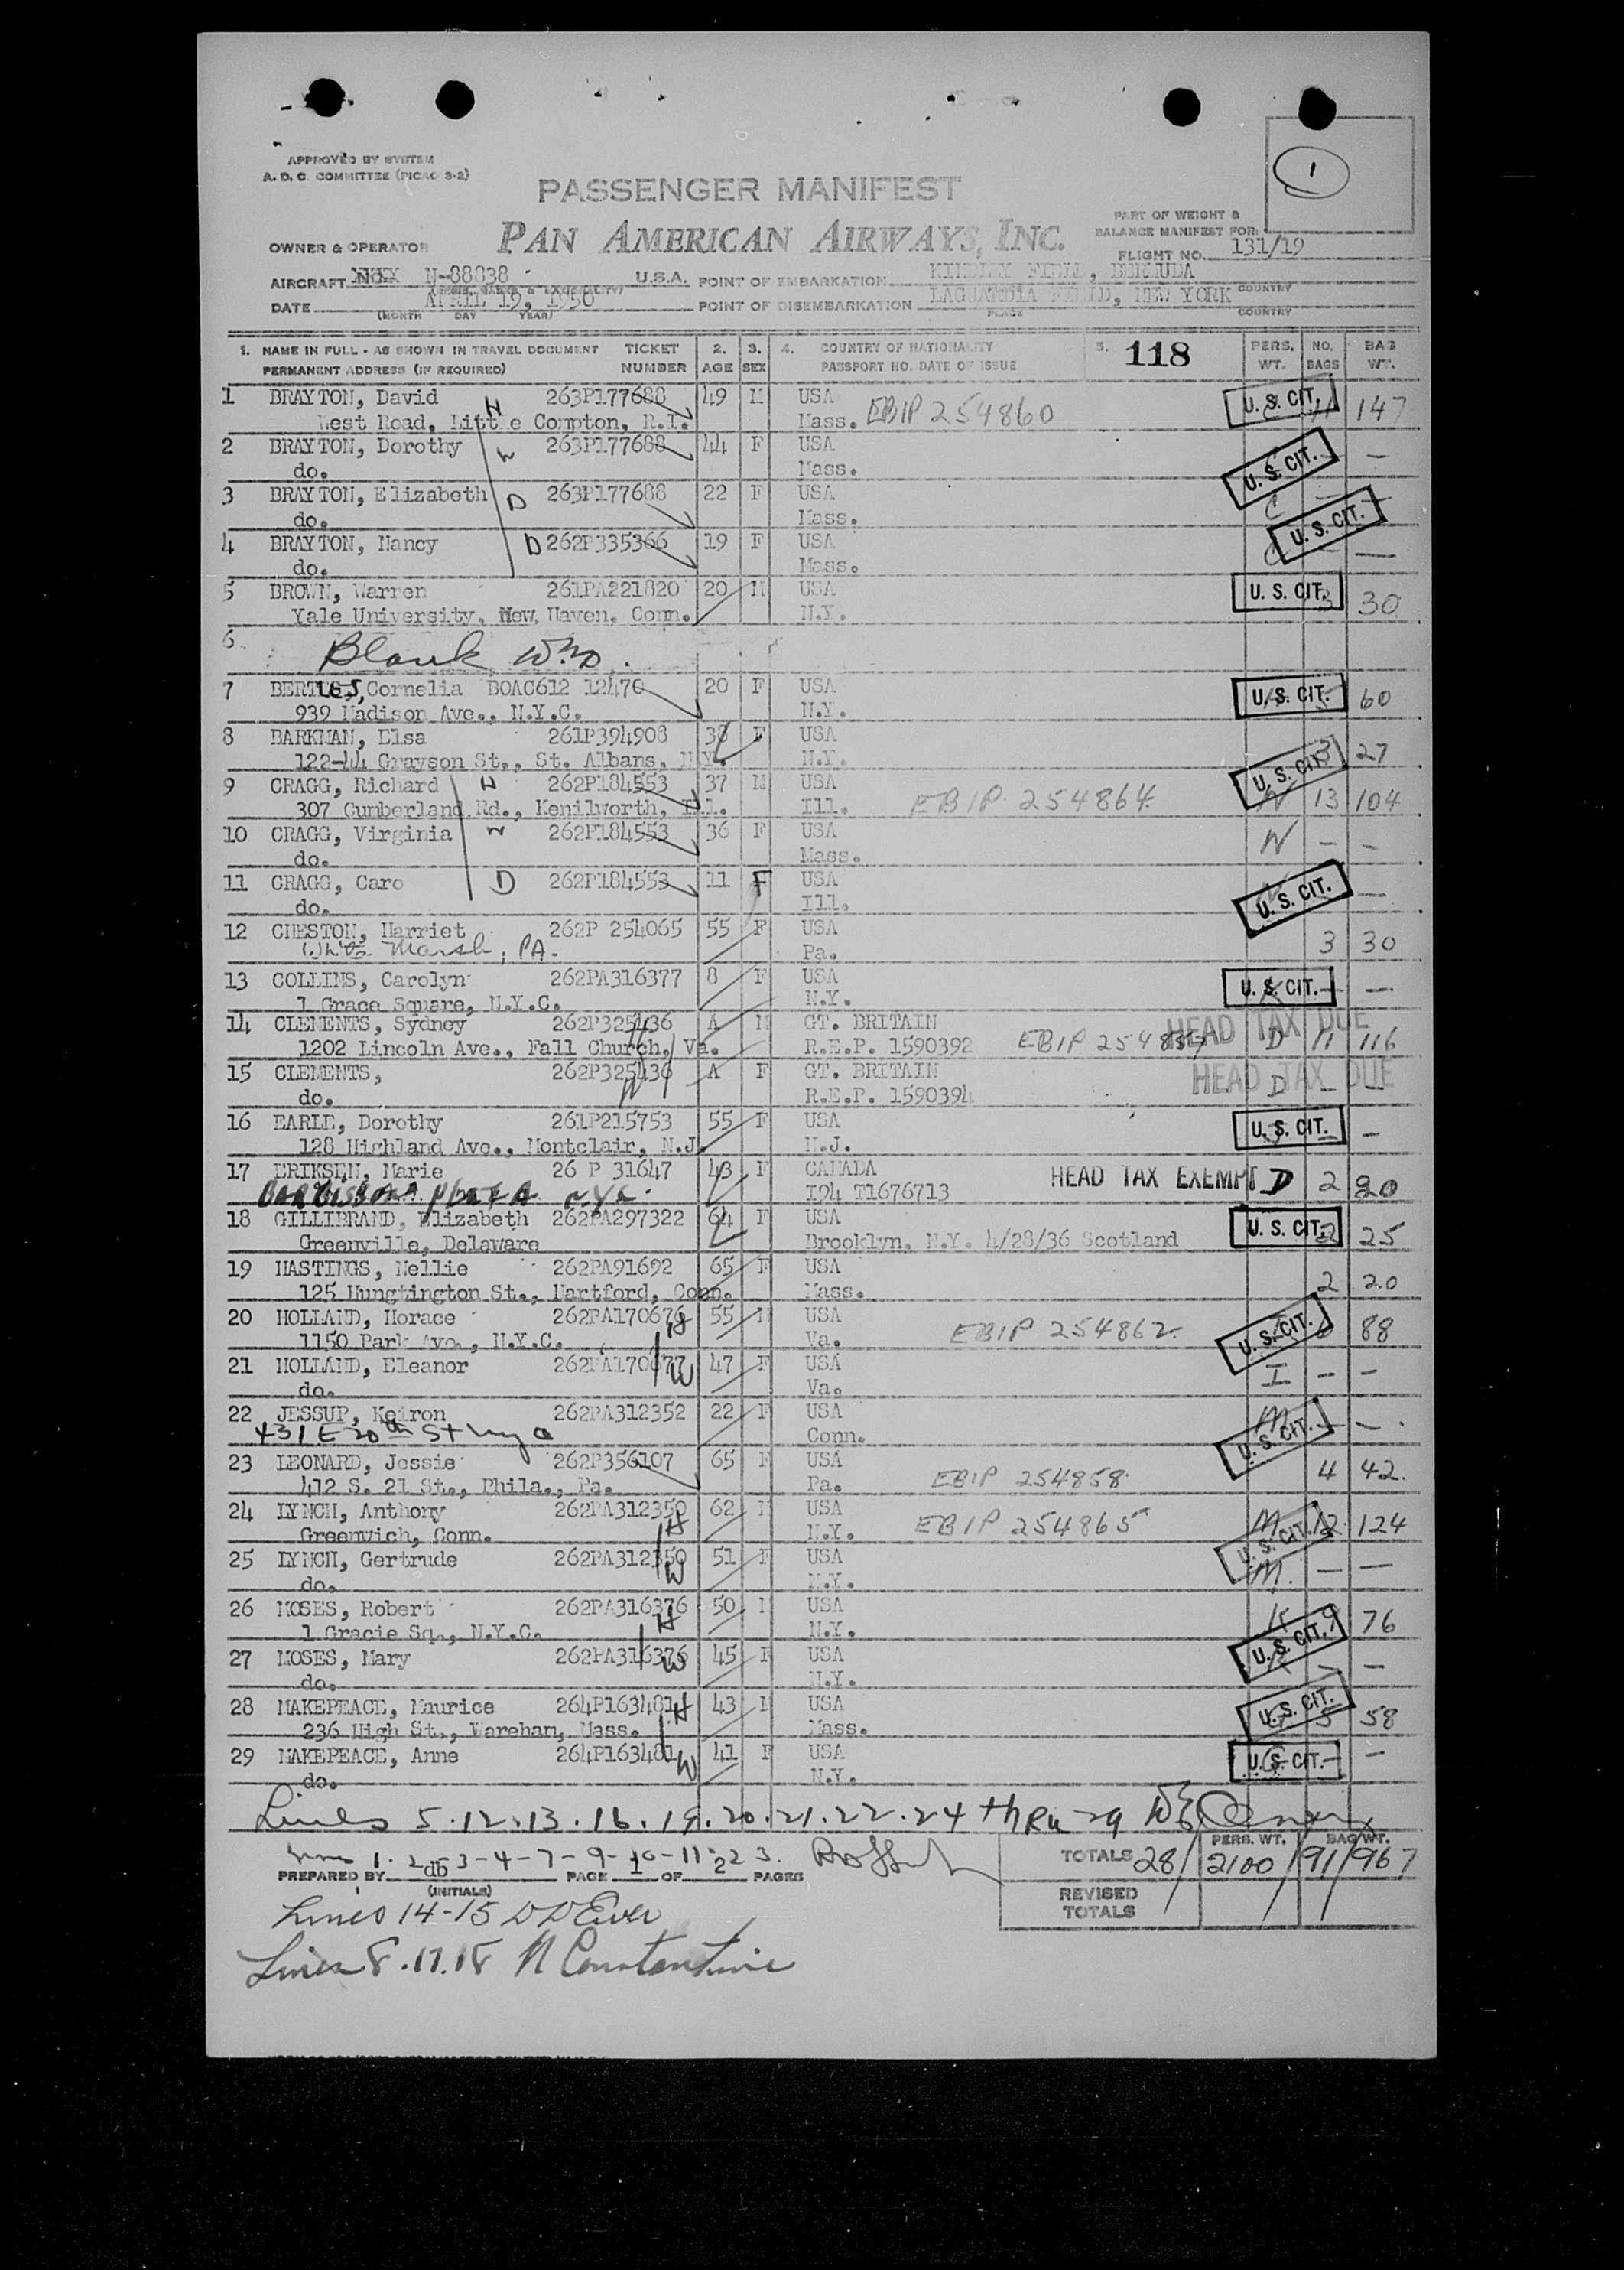 1
APPROVED BY SYSTEM
A. D. C. COMMITTEE (PICAO 8-2)
PASSENGER MANIFEST
PART OF WEIGHT &
BALANCE MANIFEST FOR:
OWNER & OPERATOR PAN AMERICAN AIRWAYS, INC.
FLIGHT NO. 131/19
AIRCRAFT N-88838 U.S.A. POINT OF EMBARKATION KINDLEY FIELD, BERMUDA
COUNTRY
DATE APRIL 19, 1950 POINT OF DISEMBARKATION LAGUARDIA FIELD, NEW YORK
(MONTH DAY YEAR) PLACE COUNTRY
1. NAME IN FULL - AS SHOWN IN TRAVEL DOCUMENT TICKET 2. 3. 4. COUNTRY OF NATIONALITY 5. 118 PERS. NO. BAG
PERMANENT ADDRESS (IF REQUIRED) NUMBER AGE SEX PASSPORT NO. DATE OF ISSUE WT. BAGS WT.
1 BRAYTON, David H 263P177688 49 M USA U. S. CIT. 11 147
West Road, Little Compton, R.I. Mass. EBIP 254860
2 BRAYTON, Dorothy W 263P177688 44 F USA U. S. CIT. —
do. Mass.
3 BRAYTON, Elizabeth D 263P177688 22 F USA C — —
do. Mass. U. S. CIT.
4 BRAYTON, Nancy D 262P335366 19 F USA —
do. Mass.
5 BROWN, Warren 261PA221820 20 M USA U. S. CIT. 3 30
Yale University, New Haven, Conn. N.Y.
6 Blank
7 BERTLES, Cornelia BOAC612 12470 20 F USA U. S. CIT. 60
939 Madison Ave., N.Y.C. N.Y.
8 BARKMAN, Elsa 261P394908 38 F USA 3 27
122-44 Grayson St., St. Albans, N.Y. N.Y. U. S. CIT.
9 CRAGG, Richard H 262P184553 37 M USA
307 Cumberland Rd., Kenilworth, Ill. Ill. EBIP 254864 N 13 104
10 CRAGG, Virginia W 262P184553 36 F USA N — —
do. Mass.
11 CRAGG, Caro D 262P184553 11 F USA U. S. CIT. —
do. Ill.
12 CHESTON, Harriet 262P 254065 55 F USA 3 30
White Marsh, PA. Pa.
13 COLLINS, Carolyn 262PA316377 8 F USA U. S. CIT. — —
1 Grace Square, N.Y.C. N.Y.
14 CLEMENTS, Sydney 262P325436 A M GT. BRITAIN HEAD TAX DUE
1202 Lincoln Ave., Fall Church, Va. H R.E.P. 1590392 EBIP 254857 D 11 116
15 CLEMENTS, 262P325436 A F GT. BRITAIN HEAD TAX DUE D — —
do. W R.E.P. 1590394
16 EARLE, Dorothy 261P215753 55 F USA U. S. CIT. — —
128 Highland Ave., Montclair, N.J. N.J.
17 ERIKSEN, Marie 26 P 31647 43 F CANADA HEAD TAX EXEMPT D 2 20
BARBISON PLAZA NYC. I94 T1676713
18 GILLIBRAND, Elizabeth 262PA297322 64 F USA U. S. CIT. 2 25
Greenville, Delaware Brooklyn, N.Y. 4/28/36 Scotland
19 HASTINGS, Nellie 262PA91692 65 F USA 2 20
125 Hungtington St., Hartford, Conn. Mass.
20 HOLLAND, Horace 262PA170676 H 55 M USA U. S. CIT. 88
1150 Park Ave., N.Y.C. Va. EBIP 254862
21 HOLLAND, Eleanor 262PA170677 W 47 F USA I — —
do. Va.
22 JESSUP, Keiron 262PA312352 22 F USA M — —
431 E 20th St nyc Conn. U. S. CIT.
23 LEONARD, Jessie 262P356107 65 F USA 4 42
412 S. 21 St., Phila., Pa. Pa. EBIP 254858
24 LYNCH, Anthony 262PA312350 H 62 M USA M 12 124
Greenwich, Conn. N.Y. EBIP 254865 U. S. CIT.
25 LYNCH, Gertrude 262PA312350 W 51 F USA M. — —
do. N.Y.
26 MOSES, Robert 262PA316376 H 50 M USA K 9 76
1 Gracie Sq., N.Y.C. N.Y. U. S. CIT.
27 MOSES, Mary 262PA316376 W 45 F USA — —
do. N.Y.
28 MAKEPEACE, Maurice 264P163481 H 43 M USA U. S. CIT. 5 58
236 High St., Wareham, Mass. Mass.
29 MAKEPEACE, Anne 264P163481 W 41 F USA U. S. CIT. — —
do. N.Y.
Lines 5.12.13.16.19.20.21.22.24 thru 29
1-2-3-4-7-9-10-11-23. TOTALS 28 PERS. WT. 2100 91 BAG WT. 967
PREPARED BY db PAGE 1 OF 2 PAGES
(INITIALS) REVISED TOTALS
Lines 14-15
Lines 8.17.18 N Constantine